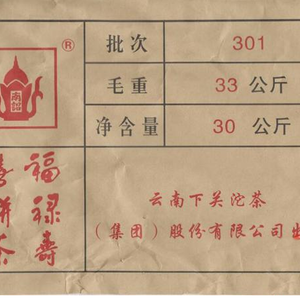 南詔
®
批次 301
毛重 33 公斤
净含量 30 公斤
福禄寿
喜饼茶
云南下关沱茶
（集团）股份有限公司出